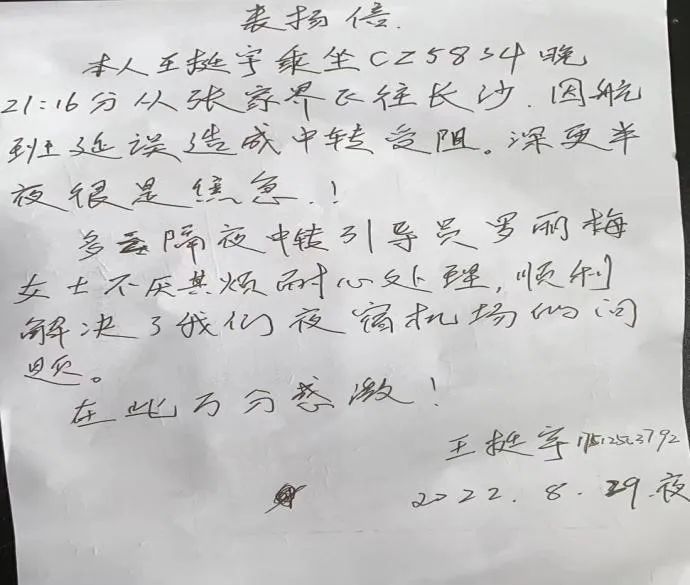 表扬信.
本人王挺宇乘坐CZ5834晚
21:16分从张家界飞往长沙.因航
班延误造成中转受阻。深更半
夜很是焦急.!
多隔夜中转引导员罗丽梅
女士不厌其烦耐心处理,顺利
解决了我们夜宿机场的问
题。
在此万分感激!
王挺宇
2022.8.29.夜